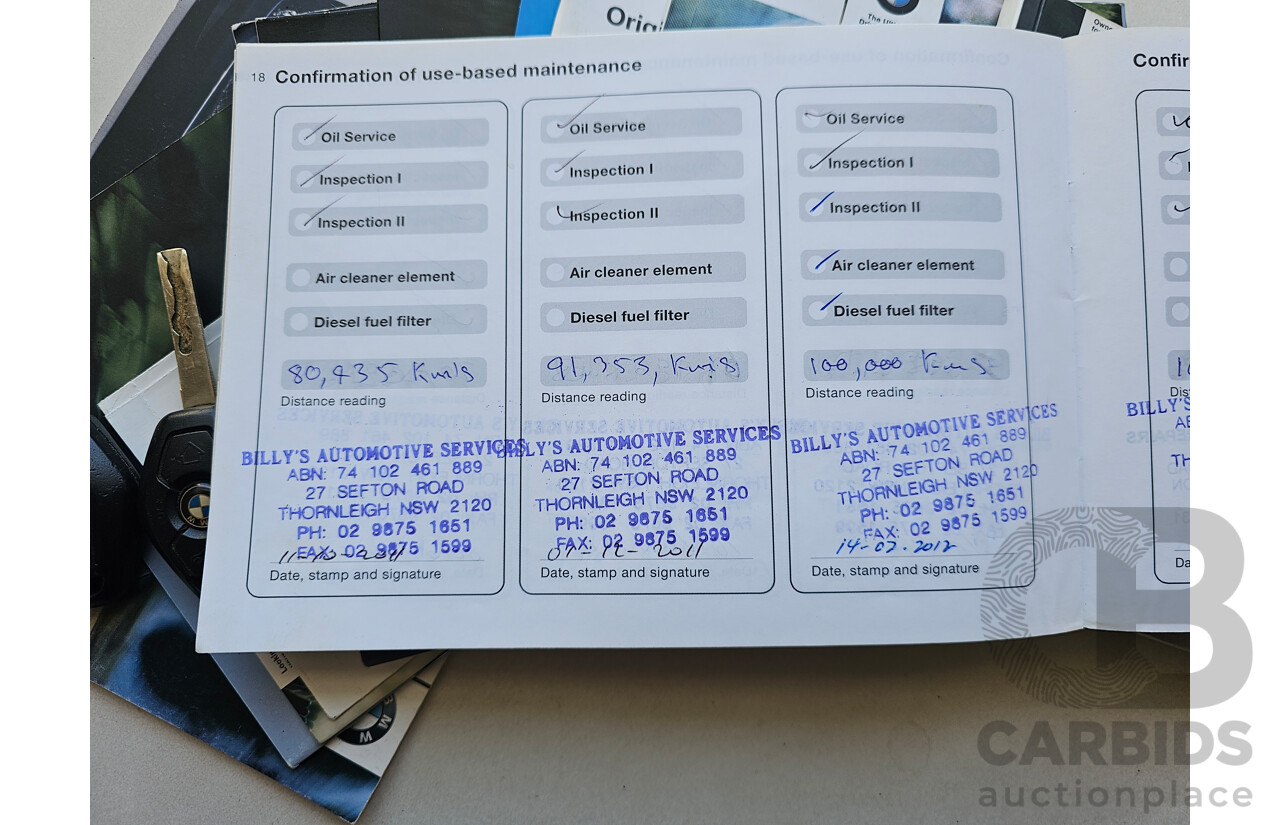 Original
18 Confirmation of use-based maintenance
Oil Service
Inspection I
Inspection II
Air cleaner element
Diesel fuel filter
80,435 Km's
Distance reading
BILLY'S AUTOMOTIVE SERVICES
ABN: 74 102 461 889
27 SEFTON ROAD
THORNLEIGH NSW 2120
PH: 02 9875 1651
FAX: 02 9875 1599
11-10-2011
Date, stamp and signature
Oil Service
Inspection I
Inspection II
Air cleaner element
Diesel fuel filter
91,353, Kms
Distance reading
BILLY'S AUTOMOTIVE SERVICES
ABN: 74 102 461 889
27 SEFTON ROAD
THORNLEIGH NSW 2120
PH: 02 9875 1651
FAX: 02 9875 1599
07-12-2011
Date, stamp and signature
Oil Service
Inspection I
Inspection II
Air cleaner element
Diesel fuel filter
100,000 Kms
Distance reading
BILLY'S AUTOMOTIVE SERVICES
ABN: 74 102 461 889
27 SEFTON ROAD
THORNLEIGH NSW 2120
PH: 02 9875 1651
FAX: 02 9875 1599
14-02-2012
Date, stamp and signature
Confir
BILLY'S
BMW
CB
CARBIDS
auctionplace